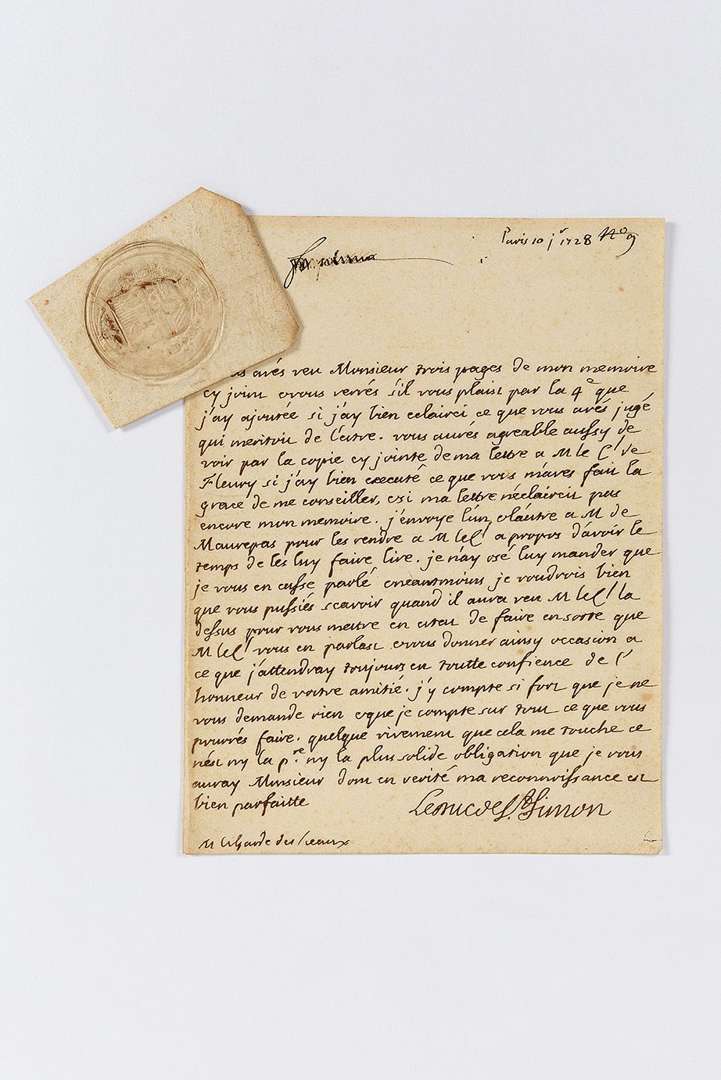 Paris 10 jr 1728 No 9
avés veu Monsieur trois pages de mon memoire
cy joint et vous verrés s'il vous plaist par la 4e que
j'ay ajoutée si j'ay bien eclairci ce que vous avés jugé
qui meritoit de l'estre. vous aurés agreable aussy de
voir par la copie cy jointe de ma lettre a M le Cl de
Fleury si j'ay bien executé ce que vous m'aves fait la
grace de me conseiller, et si ma lettre n'eclaircit pas
encore mon memoire. j'envoye l'un et l'autre a M de
Maurepas pour les rendre a M le Cl a propos d'avoir le
temps de les luy faire lire. je n'ay osé luy mander que
je vous en eusse parlé et neantmoins je voudrois bien
que vous pussiés scavoir quand il aura veu M le Cl la
dessus pour vous mettre en estat de faire en sorte que
M le Cl vous en parlast et vous donner ainsy occasion a
ce que j'attendray toujours en toutte confience de l'
honneur de vostre amitié. j'y compte si fort que je ne
vous demande rien et que je compte sur tout ce que vous
pourrés faire. quelque vivement que cela me touche ce
n'est ny la pre ny la plus solide obligation que je vous
auray Monsieur dont en verité ma reconnoissance est
bien parfaitte
Le Duc de St Simon
M le Garde des Sceaux